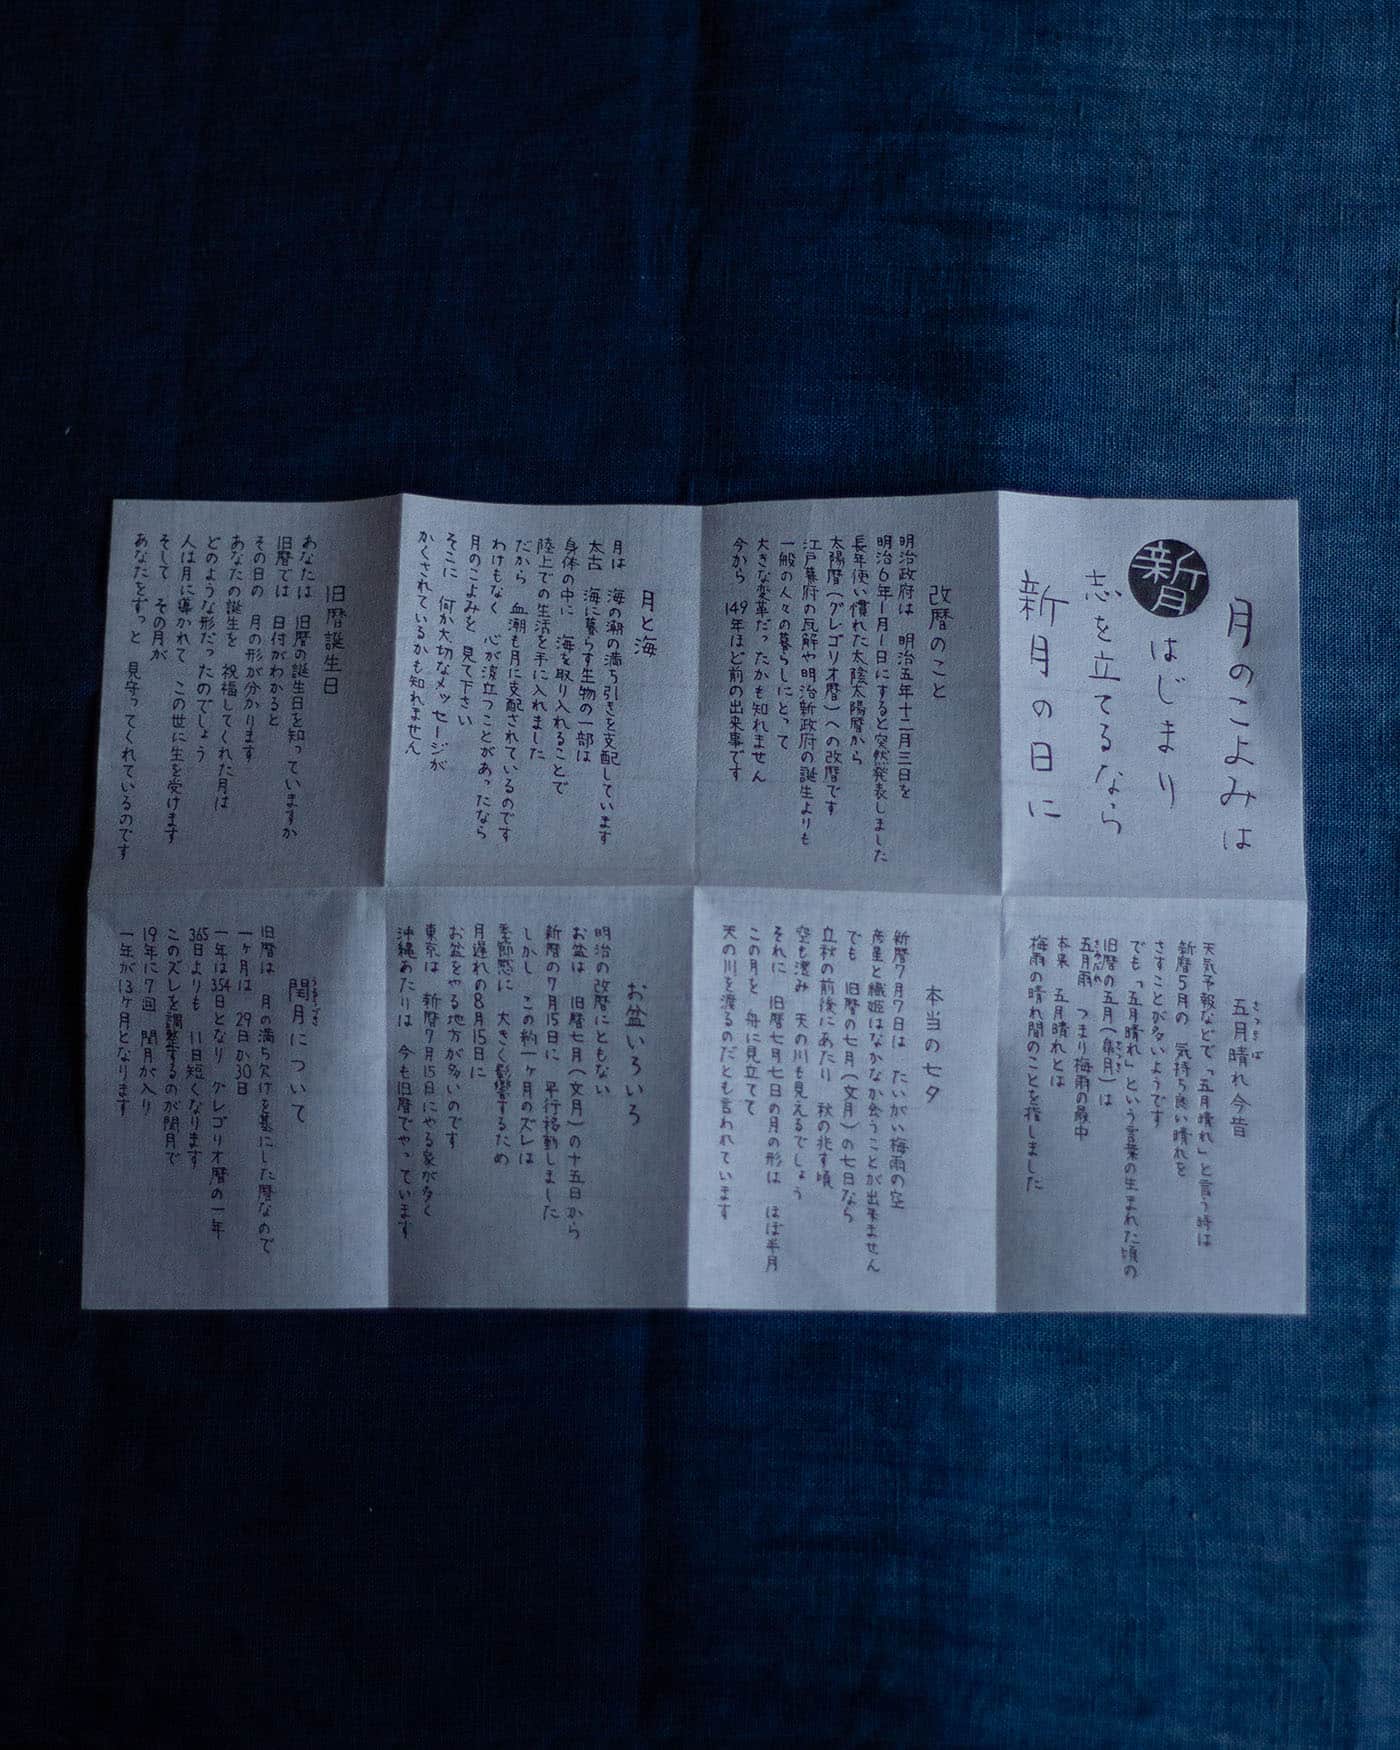 月のこよみは
新月
はじまり
志を立てるなら
新月の日に
改暦のこと
明治政府は 明治五年十二月三日を
明治6年1月1日にすると突然発表しました
長年使い慣れた太陰太陽暦から
太陽暦(グレゴリオ暦)への改暦です
江戸幕府の瓦解や明治新政府の誕生よりも
一般の人々の暮らしにとって
大きな変革だったかも知れません
今から 149年ほど前の出来事です
月と海
月は 海の潮の満ち引きを支配しています
太古 海に暮らす生物の一部は
身体の中に 海を取り入れることで
陸上での生活を手に入れました
だから 血潮も月に支配されているのです
わけもなく 心が波立つことがあったなら
月のこよみを 見て下さい
そこに 何か大切なメッセージが
かくされているかも知れません
旧暦誕生日
あなたは 旧暦の誕生日を知っていますか
旧暦では 日付がわかると
その日の 月の形が分かります
あなたの誕生を 祝福してくれた月は
どのような形だったのでしょう
人は月に導かれて この世に生を受けます
そして その月が
あなたをずっと 見守ってくれているのです
さつきばれ
五月晴れ今昔
天気予報などで「五月晴れ」と言う時は
新暦5月の 気持ち良い晴れを
さすことが多いようです
でも「五月晴れ」という言葉の生まれた頃の
旧暦の五月(皐月)は
さつき
五月雨 つまり梅雨の最中
さみだれ
本来 五月晴れとは
梅雨の晴れ間のことを指しました
本当の七夕
新暦7月7日は たいがい梅雨の空
彦星と織姫はなかなか会うことが出来ません
でも 旧暦の七月(文月)の七日なら
立秋の前後にあたり 秋の兆す頃
空も澄み 天の川も見えるでしょう
それに 旧暦七月七日の月の形は ほぼ半月
この月を 舟に見立てて
天の川を渡るのだとも言われています
お盆いろいろ
明治の改暦にともない
お盆は 旧暦七月(文月)の十五日から
新暦の7月15日に 平行移動しました
しかし この約一ヶ月のズレは
季節感に 大きく影響するため
月遅れの8月15日に
お盆をやる地方が多いのです
東京は 新暦7月15日にやる家が多く
沖縄あたりは 今も旧暦でやっています
うるうづき
閏月について
旧暦は 月の満ち欠けを基にした暦なので
一ヶ月は 29日か30日
一年は354日となり グレゴリオ暦の一年
365日よりも 11日短くなります
このズレを調整するのが閏月で
19年に7回 閏月が入り
一年が13ヶ月となります